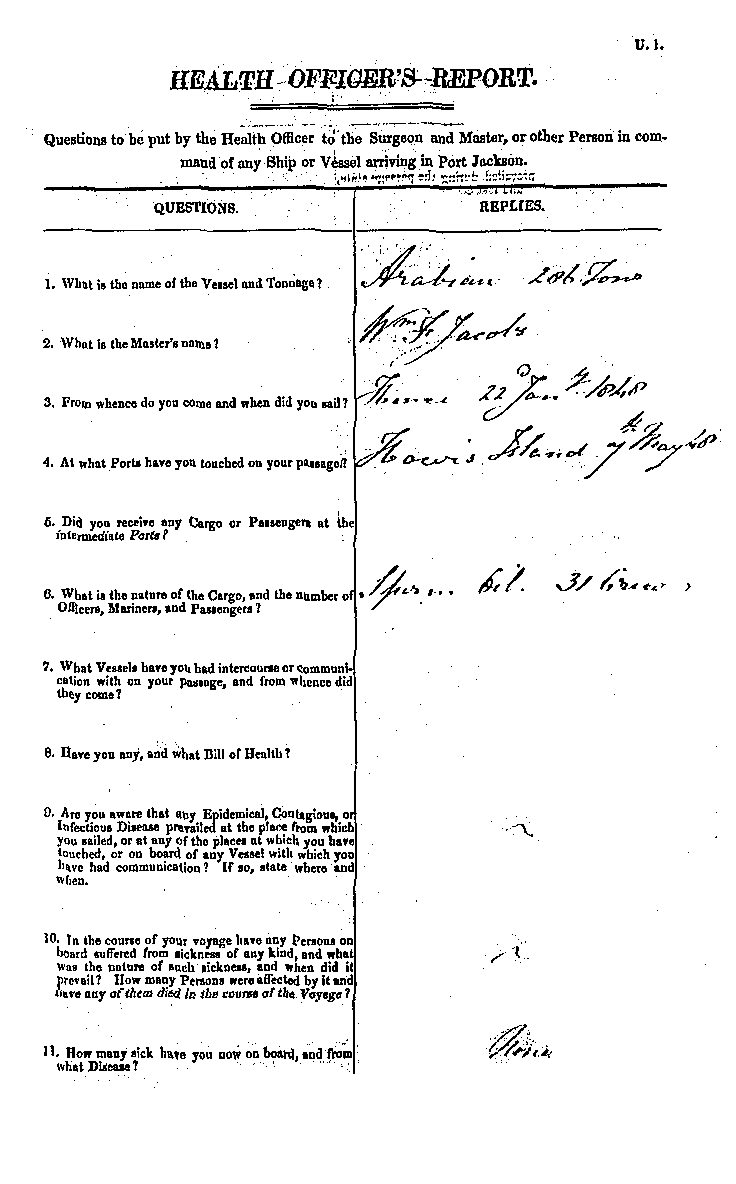 U. 1.
HEALTH OFFICER'S REPORT.
Questions to be put by the Health Officer to the Surgeon and Master, or other Person in com-
mand of any Ship or Vessel arriving in Port Jackson.
QUESTIONS.
REPLIES.
1. What is the name of the Vessel and Tonnage?
Arabian 286 Tons
2. What is the Master's name?
Wm F. Jacobs
3. From whence do you come and when did you sail?
22d Jany 1848
4. At what Ports have you touched on your passage?
Island 7th May 48
5. Did you receive any Cargo or Passengers at the
intermediate Ports?
6. What is the nature of the Cargo, and the number of
Officers, Mariners, and Passengers?
Sperm Oil. 31 Crew
7. What Vessels have you had intercourse or communi-
cation with on your passage, and from whence did
they come?
8. Have you any, and what Bill of Health?
9. Are you aware that any Epidemical, Contagious, or
Infectious Disease prevailed at the place from which
you sailed, or at any of the places at which you have
touched, or on board of any Vessel with which you
have had communication? If so, state where and
when.
10. In the course of your voyage have any Persons on
board suffered from sickness of any kind, and what
was the nature of such sickness, and when did it
prevail? How many Persons were affected by it and
have any of them died in the course of the Voyage?
11. How many sick have you now on board, and from
what Disease?
None